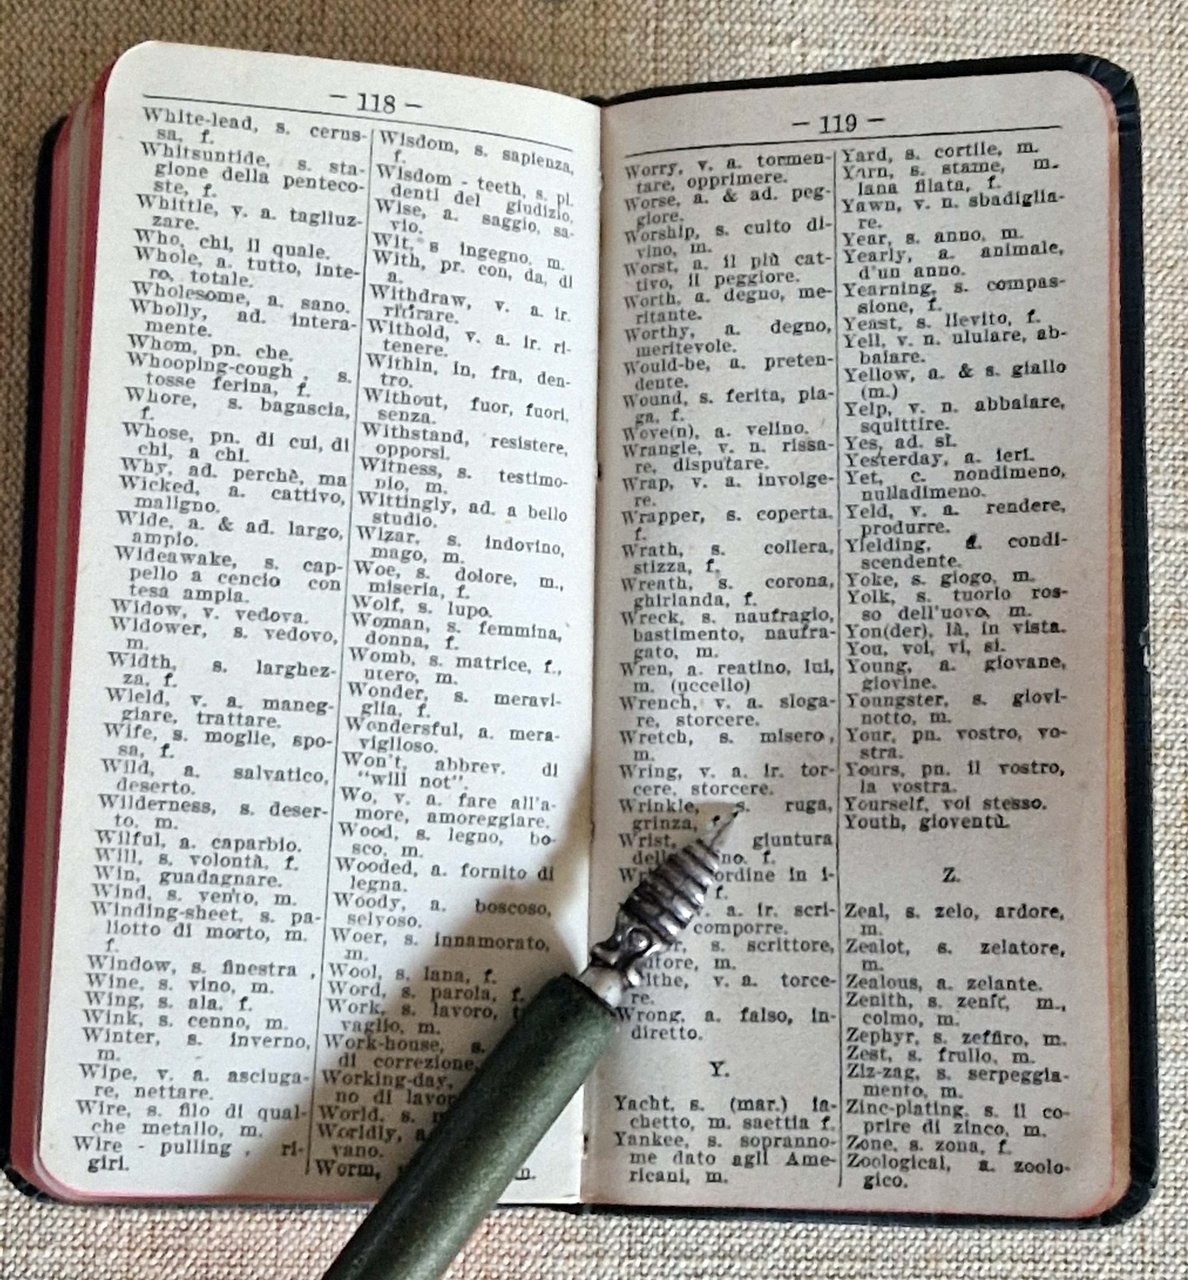 — 118 —
White-lead, s. cerus-
sa, f.
Whitsuntide, s. sta-
gione della penteco-
ste, f.
Whittle, v. a. tagliuz-
zare.
Who, chi, il quale.
Whole, a. tutto, inte-
ro, totale.
Wholesome, a. sano.
Wholly, ad. intera-
mente.
Whom, pn. che.
Whooping-cough, s.
tosse ferina, f.
Whore, s. bagascia,
f.
Whose, pn. di cui, di
chi, a chi.
Why, ad. perchè, ma
Wicked, a. cattivo,
maligno.
Wide, a. & ad. largo,
ampio.
Wideawake, s. cap-
pello a cencio con
tesa ampia.
Widow, v. vedova.
Widower, s. vedovo,
m.
Width, s. larghez-
za, f.
Wield, v. a. maneg-
giare, trattare.
Wife, s. moglie, spo-
sa, f.
Wild, a. salvatico,
deserto.
Wilderness, s. deser-
to, m.
Wilful, a. caparbio.
Will, s. volontà, f.
Win, guadagnare.
Wind, s. vento, m.
Winding-sheet, s. pa-
liotto di morto, m.
f.
Window, s. finestra,
Wine, s. vino, m.
Wing, s. ala. f.
Wink, s. cenno, m.
Winter, s. inverno,
m.
Wipe, v. a. asciuga-
re, nettare.
Wire, s. filo di qual-
che metallo, m.
Wire - pulling, ri-
giri.
Wisdom, s. sapienza,
f.
Wisdom - teeth, s. pl.
denti del giudizio,
Wise, a. saggio, sa-
vio.
Wit, s ingegno, m.
With, pr. con, da, di
a.
Withdraw, v. a. ir.
ritirare.
Withold, v. a. ir. ri-
tenere.
Within, in, fra, den-
tro.
Without, fuor, fuori,
senza.
Withstand, resistere,
opporsi.
Witness, s. testimo-
nio, m.
Wittingly, ad. a bello
studio.
Wizar, s. indovino,
mago, m.
Woe, s. dolore, m.,
miseria, f.
Wolf, s. lupo.
Woman, s. femmina,
donna, f.
Womb, s. matrice, f.,
utero, m.
Wonder, s. meravi-
glia, f.
Wondersful, a. mera-
viglioso.
Won't, abbrev. di
"will not".
Wo, v. a. fare all'a-
more, amoreggiare.
Wood, s. legno, bo-
sco, m.
Wooded, a. fornito di
legna.
Woody, a. boscoso,
selvoso.
Woer, s. innamorato,
m.
Wool, s. lana, f.
Word, s. parola, f.
Work, s. lavoro,
vaglio, m.
Work-house, s.
di correzione,
Working-day,
no di lavor
World, s.
Worldly,
vano.
Worm,
— 119 —
Worry, v. a. tormen-
tare, opprimere.
Worse, a. & ad. peg-
giore.
Worship, s. culto di-
vino, m.
Worst, a. il più cat-
tivo, il peggiore.
Worth, a. degno, me-
ritante.
Worthy, a. degno,
meritevole.
Would-be, a. preten-
dente.
Wound, s. ferita, pia-
ga, f.
Wove(n), a. velino.
Wrangle, v. n. rissa-
re, disputare.
Wrap, v. a. involge-
re.
Wrapper, s. coperta,
f.
Wrath, s. collera,
stizza, f.
Wreath, s. corona,
ghirlanda, f.
Wreck, s. naufragio,
bastimento, naufra-
gato, m.
Wren, a. reatino, lui,
m. (uccello)
Wrench, v. a. sloga-
re, storcere.
Wretch, s. misero,
m.
Wring, v. a. ir. tor-
cere, storcere.
Wrinkle, s. ruga,
grinza,
Wrist, giuntura
no. f.
ordine in i-
f.
a. ir. scri-
comporre.
s. scrittore,
m.
v. a. torce-
re.
Wrong, a. falso, in-
diretto.
Y.
Yacht, s. (mar.) ia-
chetto, m. saettia f.
Yankee, s. sopranno-
me dato agli Ame-
ricani, m.
Yard, s. cortile, m.
Yarn, s. stame, m.
lana filata, f.
Yawn, v. n. sbadiglia-
re.
Year, s. anno, m.
Yearly, a. animale,
d'un anno.
Yearning, s. compas-
sione, f.
Yeast, s. lievito, f.
Yell, v. n. ululare, ab-
baiare.
Yellow, a. & s. giallo
(m.)
Yelp, v. n. abbaiare,
squittire.
Yes, ad. sì.
Yesterday, a. ieri.
Yet, c. nondimeno,
nulladimeno.
Yeld, v. a. rendere,
produrre.
Yielding, a. condi-
scendente.
Yoke, s. giogo, m.
Yolk, s. tuorlo ros-
so dell'uovo, m.
Yon(der), là, in vista.
You, voi, vi, si.
Young, a. giovane,
giovine.
Youngster, s. giovi-
notto, m.
Your, pn. vostro, vo-
stra.
Yours, pn. il vostro,
la vostra.
Yourself, voi stesso.
Youth, gioventù.
Z.
Zeal, s. zelo, ardore,
m.
Zealot, s. zelatore,
m.
Zealous, a. zelante.
Zenith, s. zenit, m.,
colmo, m.
Zephyr, s. zeffiro, m.
Zest, s. frullo, m.
Ziz-zag, s. serpeggia-
mento, m.
Zinc-plating, s. il co-
prire di zinco, m.
Zone, s. zona, f.
Zoological, a. zoolo-
gico.